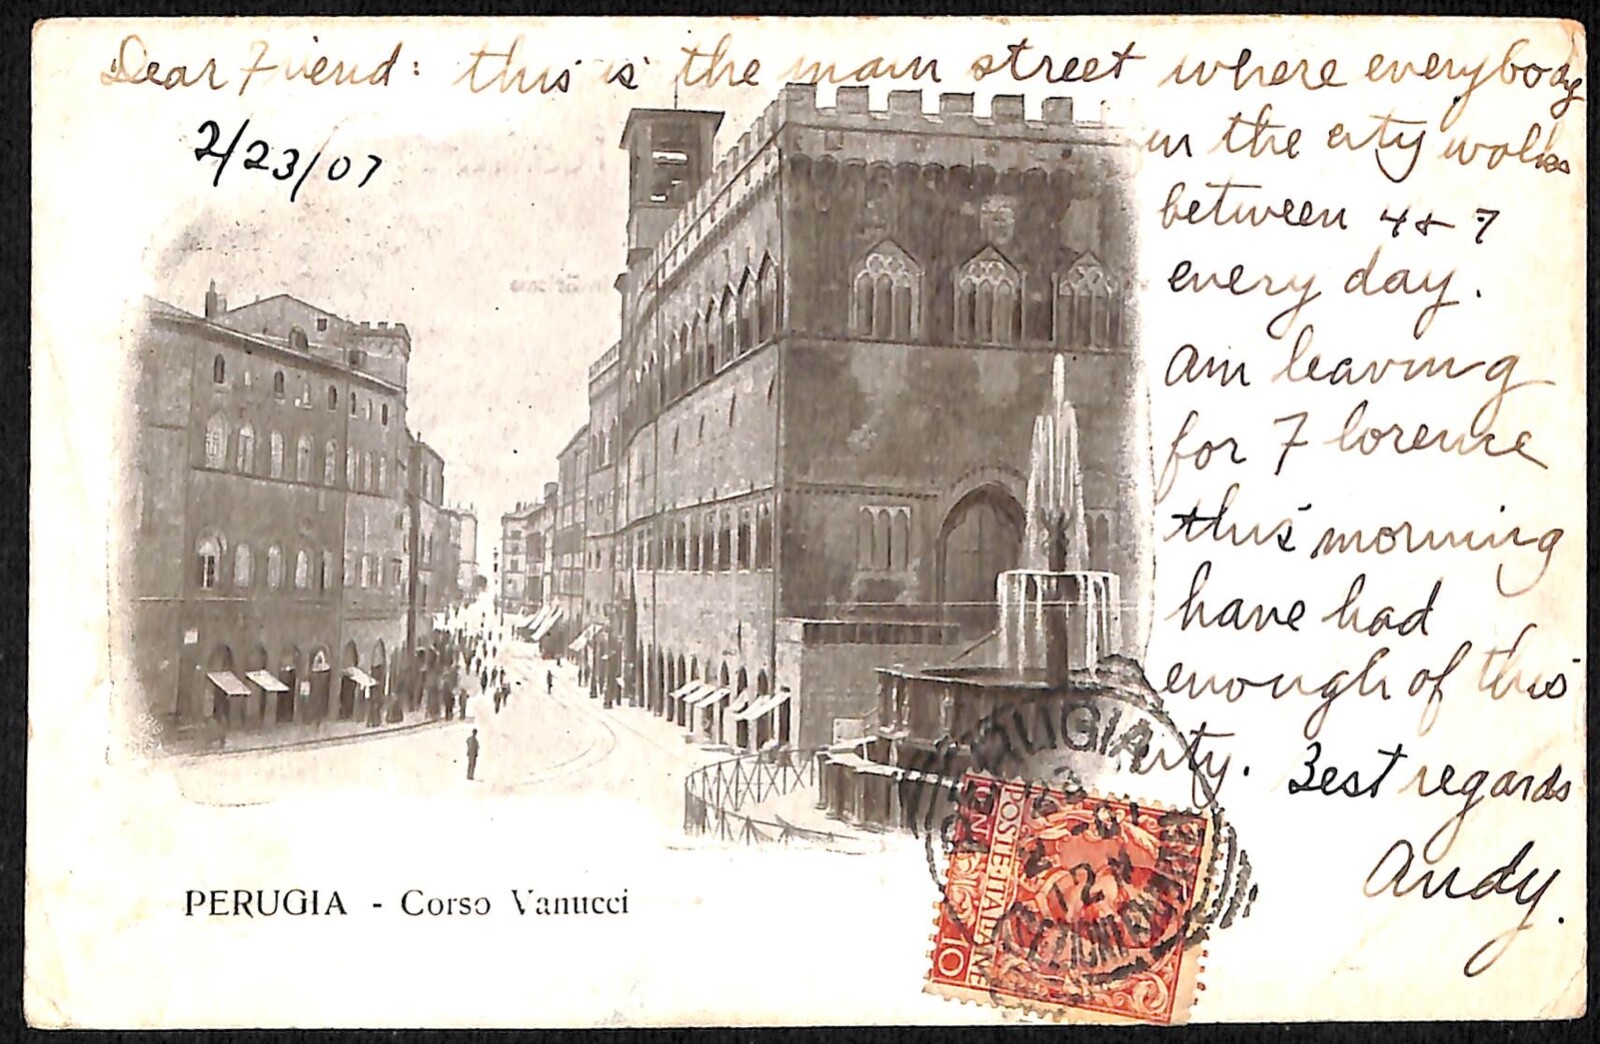 Dear Friend: this is the main street where everybody
2/23/07
in the city walks
between 4 & 7
every day.
Am leaving
for Florence
this morning
have had
enough of this
city. Best regards
Andy.
PERUGIA - Corso Vanucci
PERUGIA
12
POSTE ITALIANE
10